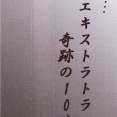 エキストラトラ
奇跡の10